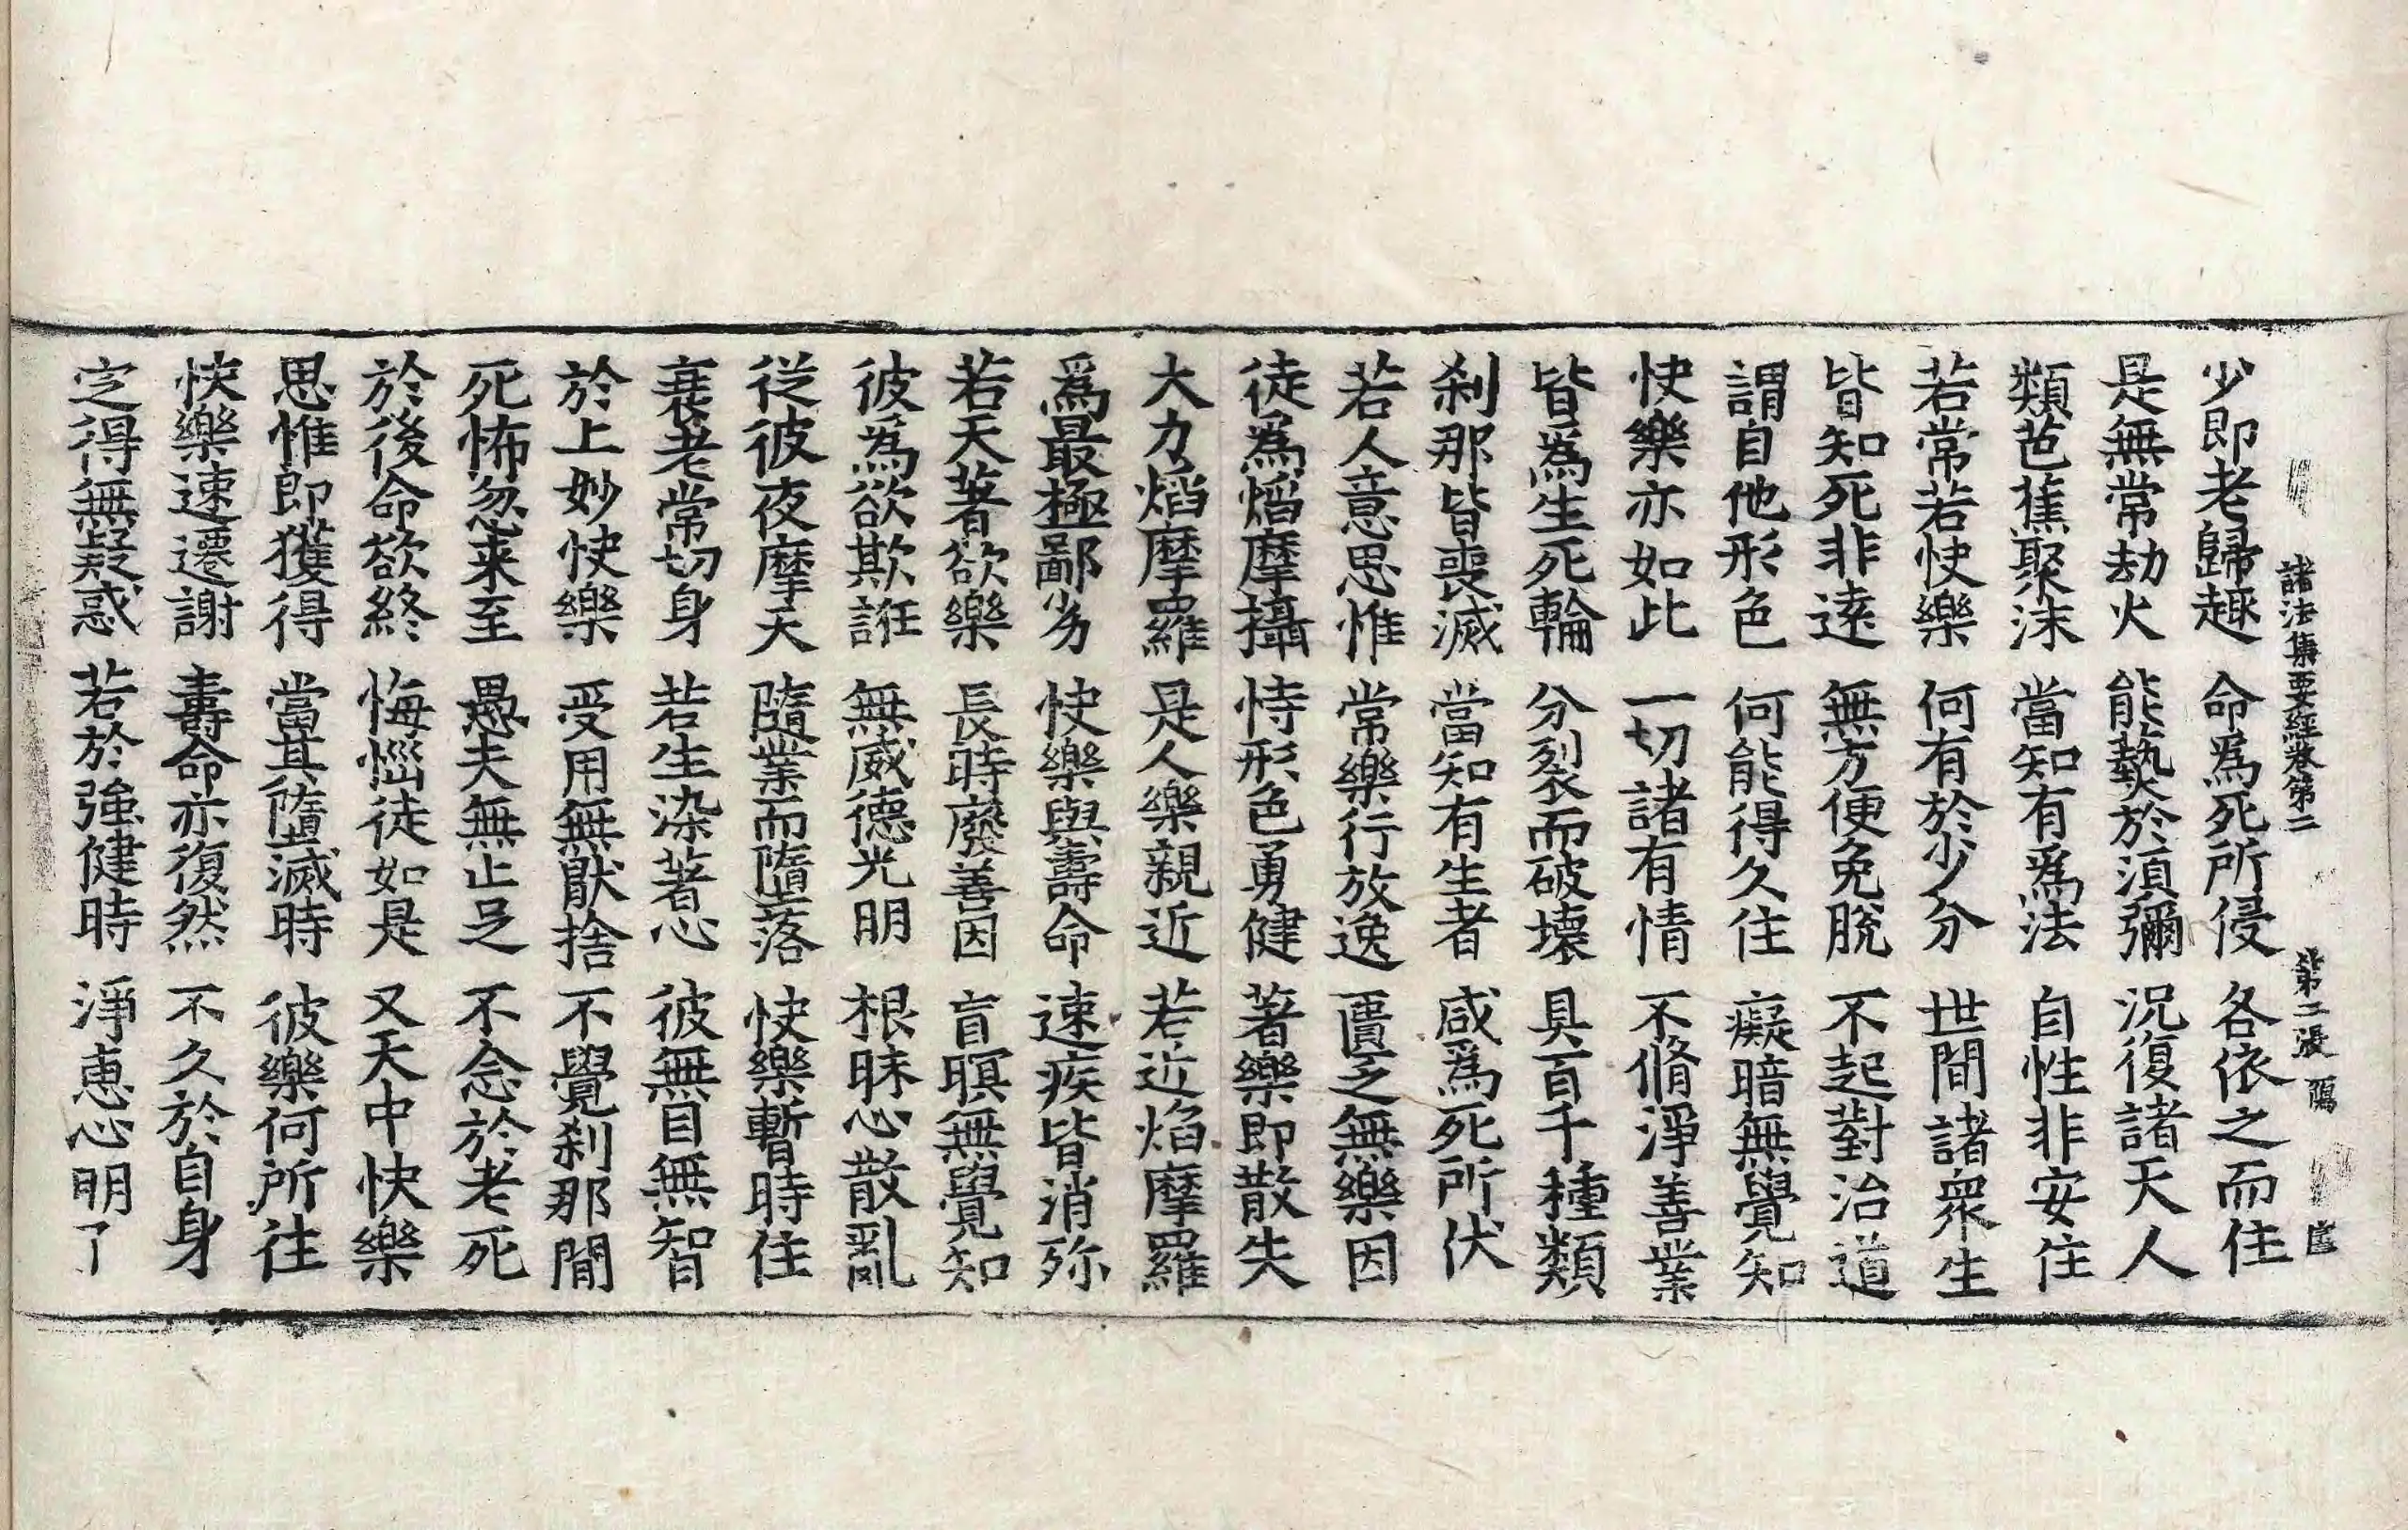 諸法集要經卷第二 第二張
少即老歸趣 命爲死所侵 各依之而住
是無常劫火 能爇於湏彌 況復諸天人
類芭蕉聚沫 當知有爲法 自性非安住
若常若快樂 何有於少分 世間諸衆生
皆知死非逺 無方便免脫 不起對治道
謂自他形色 何能得久住 癡暗無覺知
快樂亦如此 一切諸有情 不脩淨善業
皆爲生死輪 分裂而破壞 具百千種類
刹那皆喪滅 當知有生者 咸爲死所伏
若人意思惟 常樂行放逸 匱乏無樂因
徒爲焰摩攝 恃形色勇健 著樂即散失
大力焰摩羅 是人樂親近 若近焰摩羅
爲最極鄙劣 快樂與壽命 速疾皆消殄
若天著欲樂 長時廢善因 盲暝無覺知
彼爲欲欺誑 無威德光明 根昧心散亂
從彼夜摩天 隨業而墮落 快樂暫時住
衰老常切身 若生染著心 彼無目無智
於上妙快樂 受用無猒捨 不覺刹那間
死怖忽来至 愚夫無止足 不念於老死
於後命欲終 悔惱徒如是 又天中快樂
思惟即獲得 當其墮滅時 彼樂何所往
快樂速遷謝 壽命亦復然 不久於自身
定得無疑惑 若於強健時 淨恵心明了